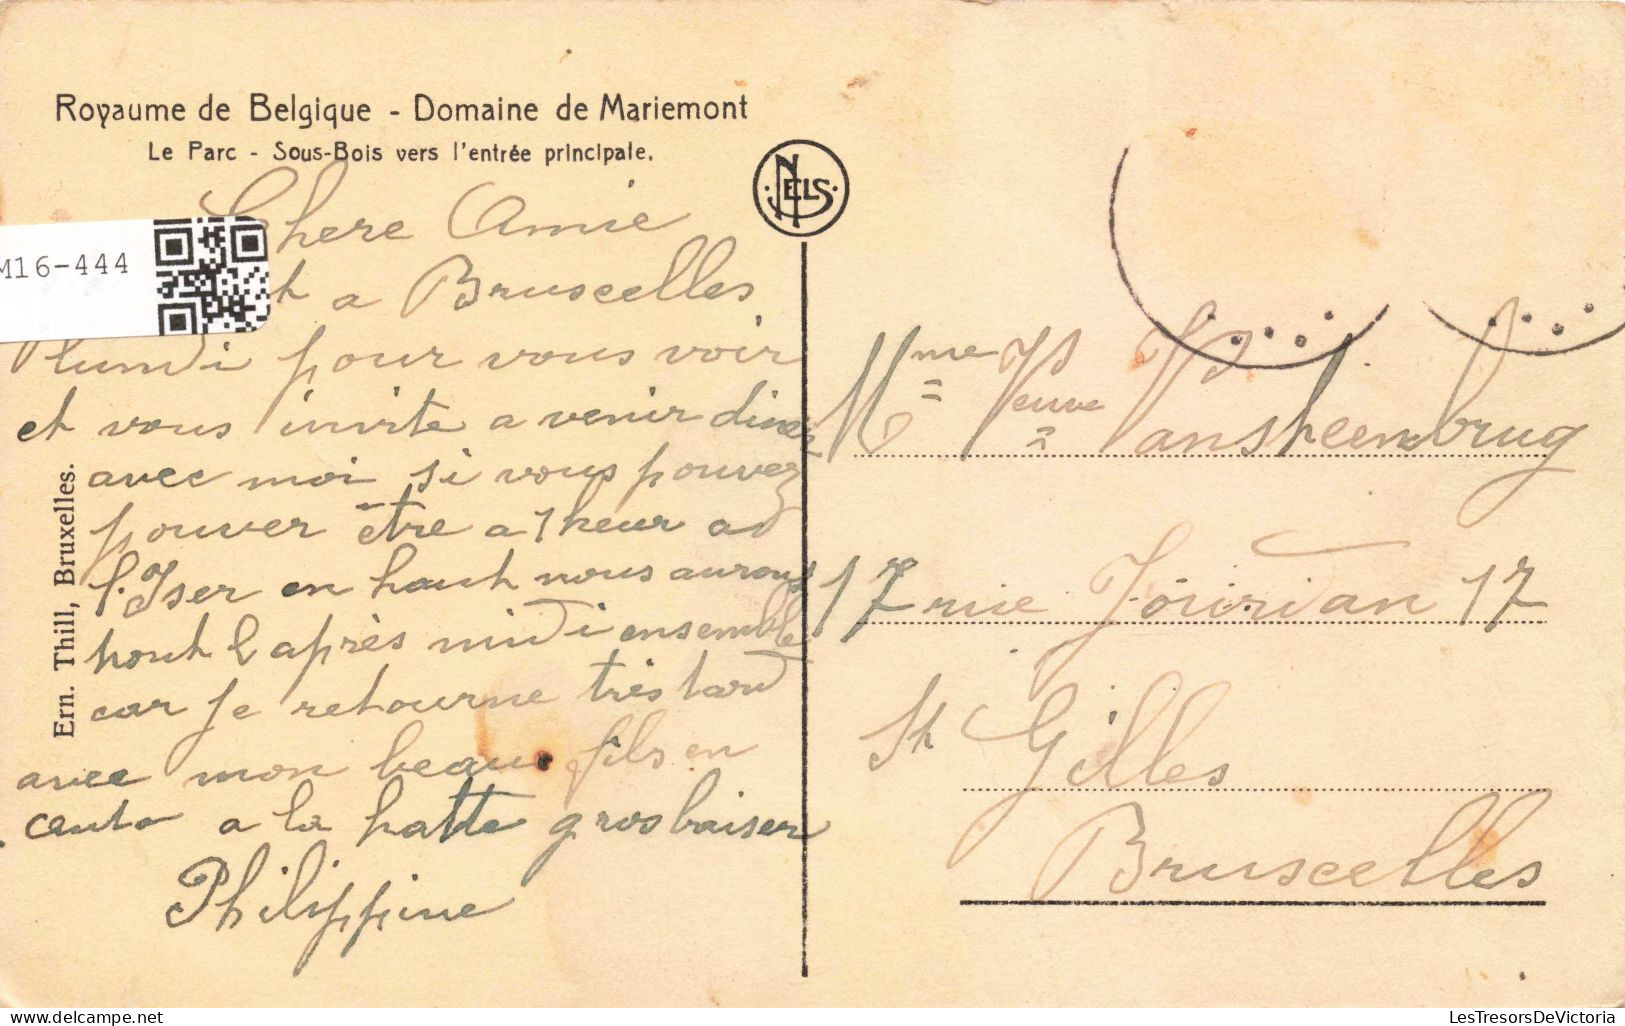 Royaume de Belgique - Domaine de Mariemont
Le Parc - Sous-Bois vers l'entrée principale.
NELS
M16-444
Chere Amie
a Bruscelles
lundi pour vous voir
et vous invite a venir diner
avec moi si vous pouvez
pouver être a 1 heur
l'Iser en haut nous aurons
l'après midi ensemble
car je retourne très tard
avec mon beau fils en
a la hatte gros baiser
Philippine
Ern. Thill, Bruxelles.
Mme Veuve Vansteenbrug
17 rue Jourdan 17
St Gilles
Bruscelles
LesTresorsDeVictoria